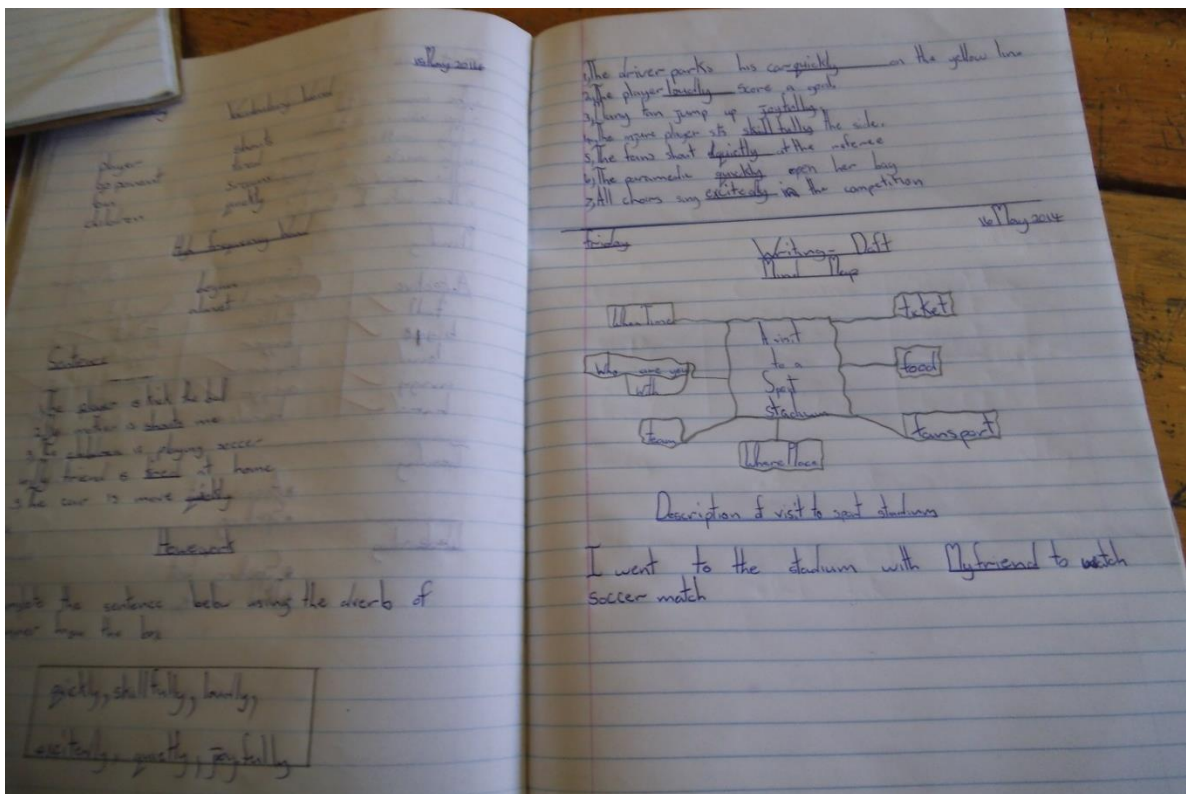 15 May 2014
Vocabulary Word
player
opponent
fan
children
shouts
tired
quickly
High frequency Word
began
almost
Sentence
1. The player is kick the ball
mother is shouts me
3. The children is playing soccer
friend is tired at home
5. The car is move quickly
Homework
the sentence below using the averb of
from the box
quickly, skillfully, loudly,
excitedly, quietly, joyfully
1, The driver parks his car quickly on the yellow line
2, The player loudly score a goals
3, Many fan jump up joyfully
4, The injure player sits skillfully the side.
5, The fans shout quietly at the referee
6, The paramedic quickly open her bag
7, All choirs sing excitedly in the competition
Friday
16 May 2014
Writing - Daft
Mind Map
When Time
ticket
A visit
to a
Spot
stadium
Who are you
with
food
team
transport
Where Place
Description of visit to spot stadium
I went to the stadium with My friend to watch
soccer match